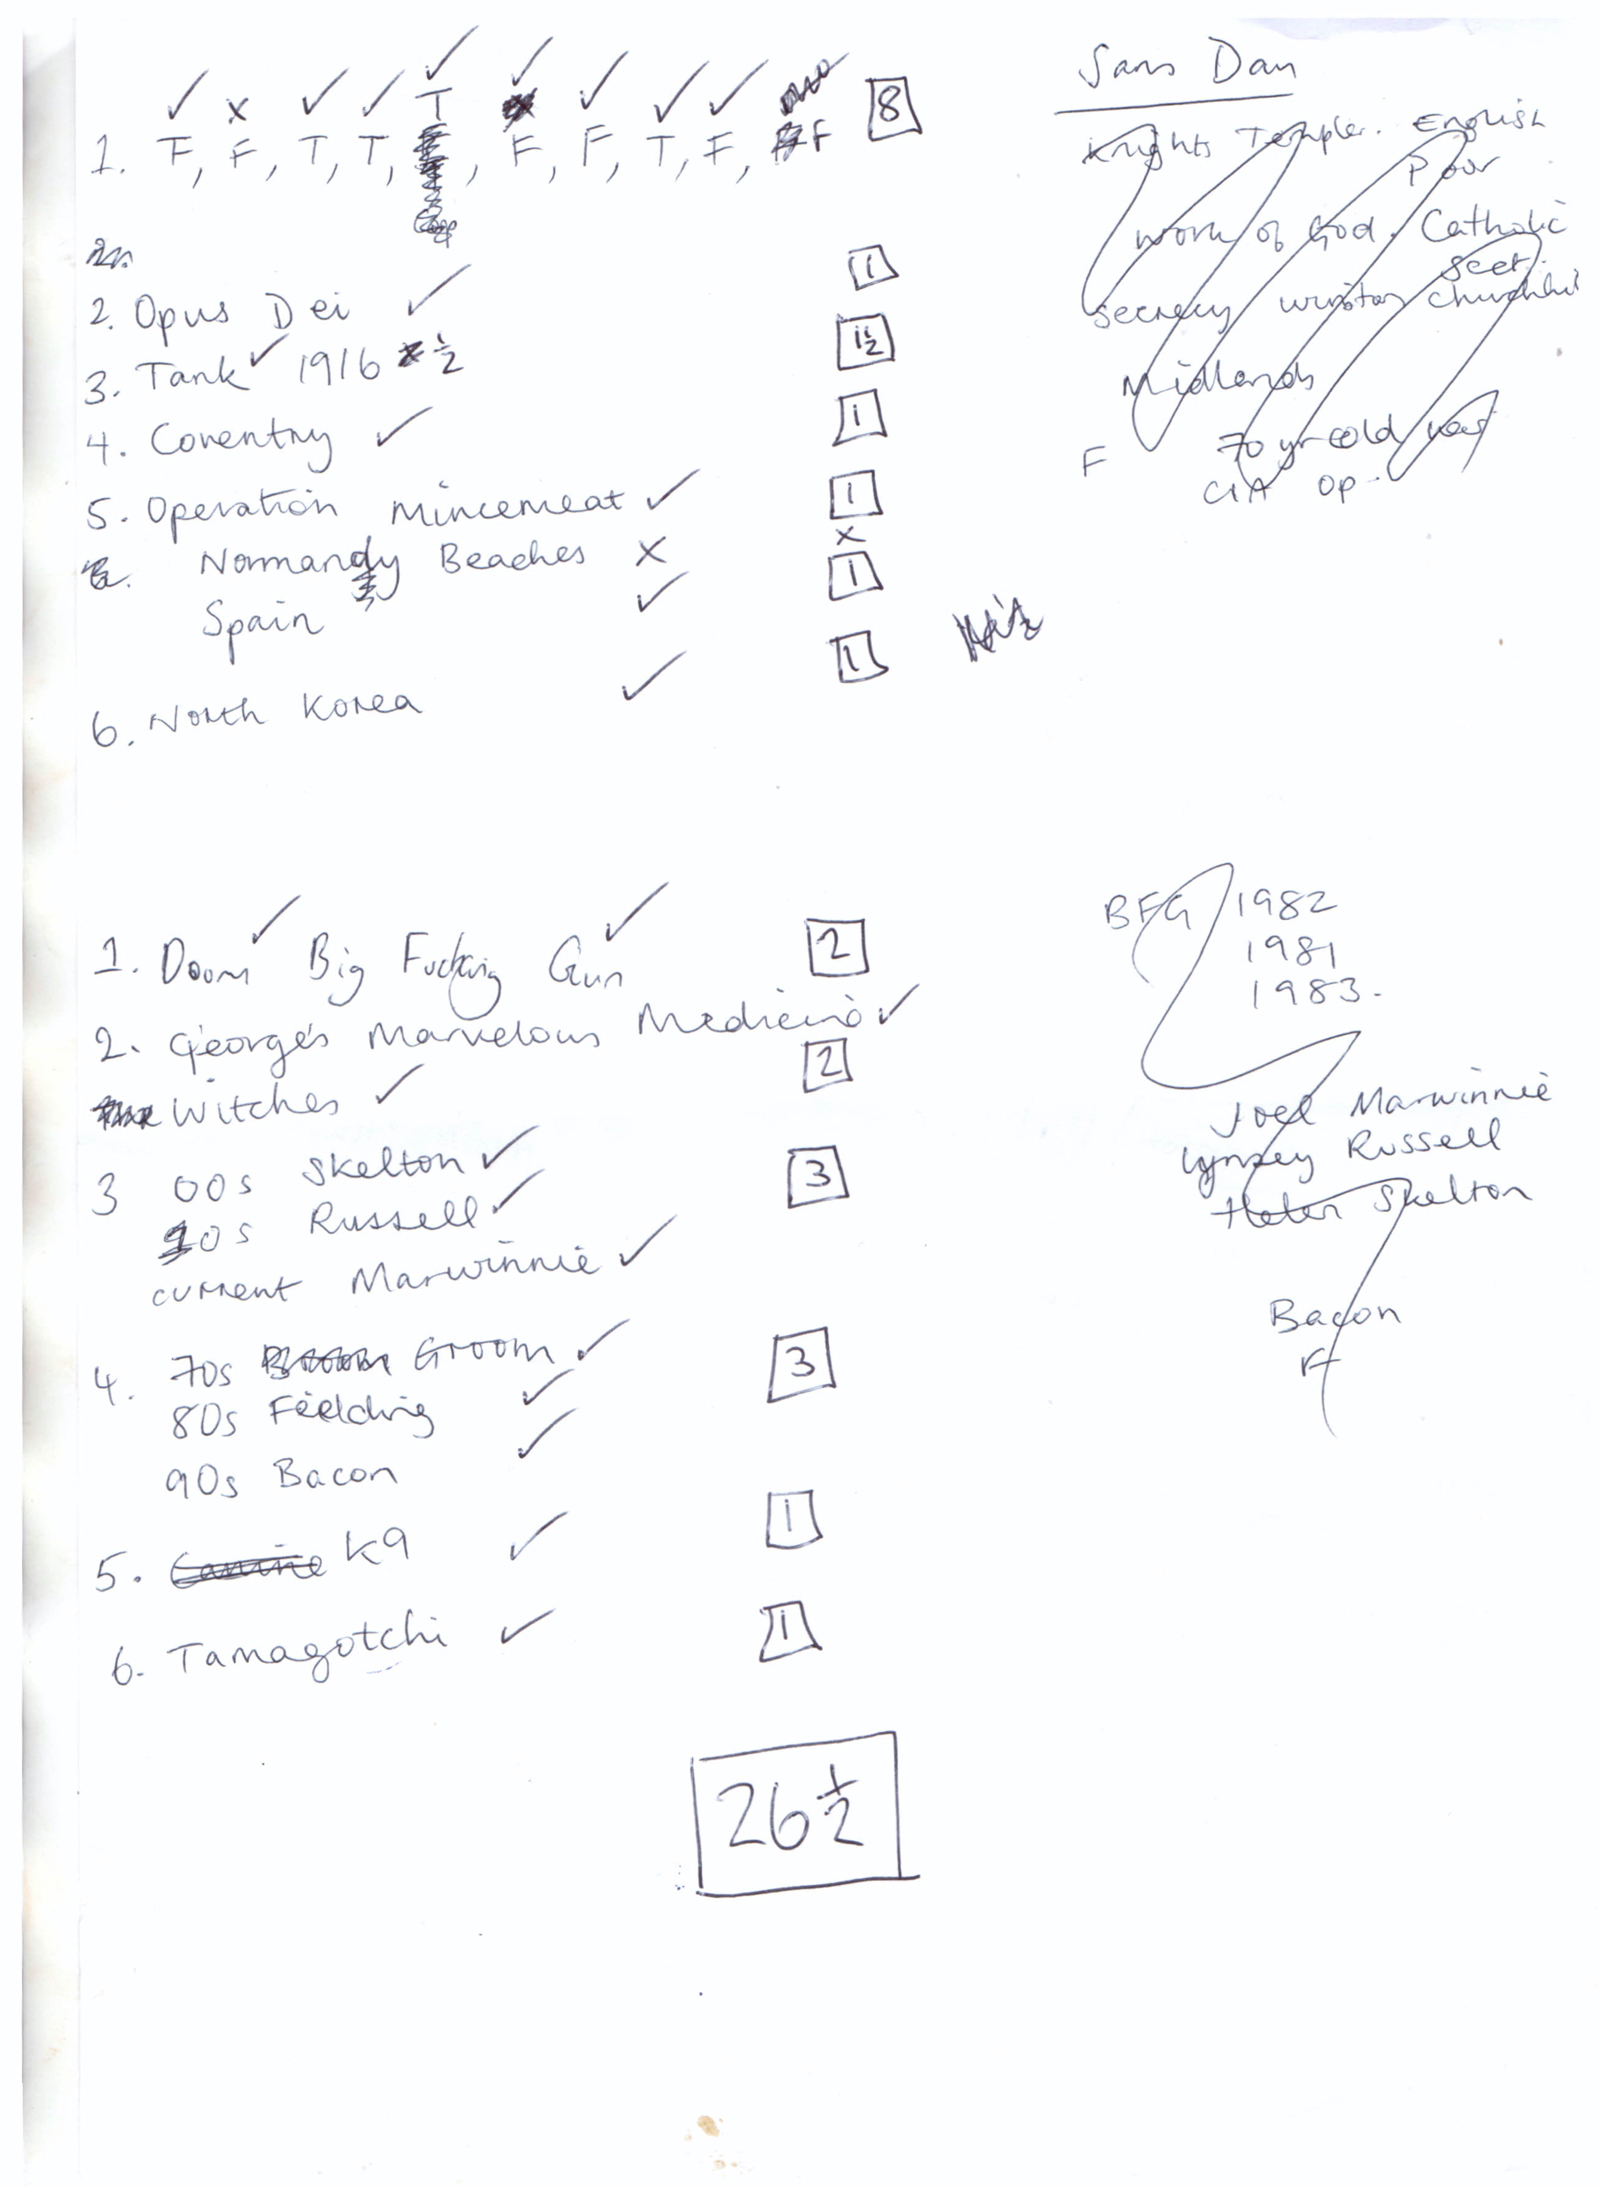 Sans Dan
1. T, F, T, T, T, F, F, T, F, F 8
Knights Templer. English
Poor
work of God. Catholic
Sect.
secrecy winston churchill
Midlands
F 70 yr cold war
CIA op.
2. Opus Dei 1
3. Tank 1916 ½ 1½
4. Coventry 1
5. Operation Mincemeat 1
Normandy Beaches x x
Spain 1
6. North Korea 1
1. Doom Big Fucking Gun 2
2. George's Marvelous Medicine
Witches 2
3 00s Skelton 3
10s Russell
current Marwinnie
4. 70s Groom 3
80s Fielding
90s Bacon
5. Canine K9 1
6. Tamagotchi 1
26½
BFG 1982
1981
1983.
Joel Marwinnie
Lynsey Russell
Helen Skelton
Bacon